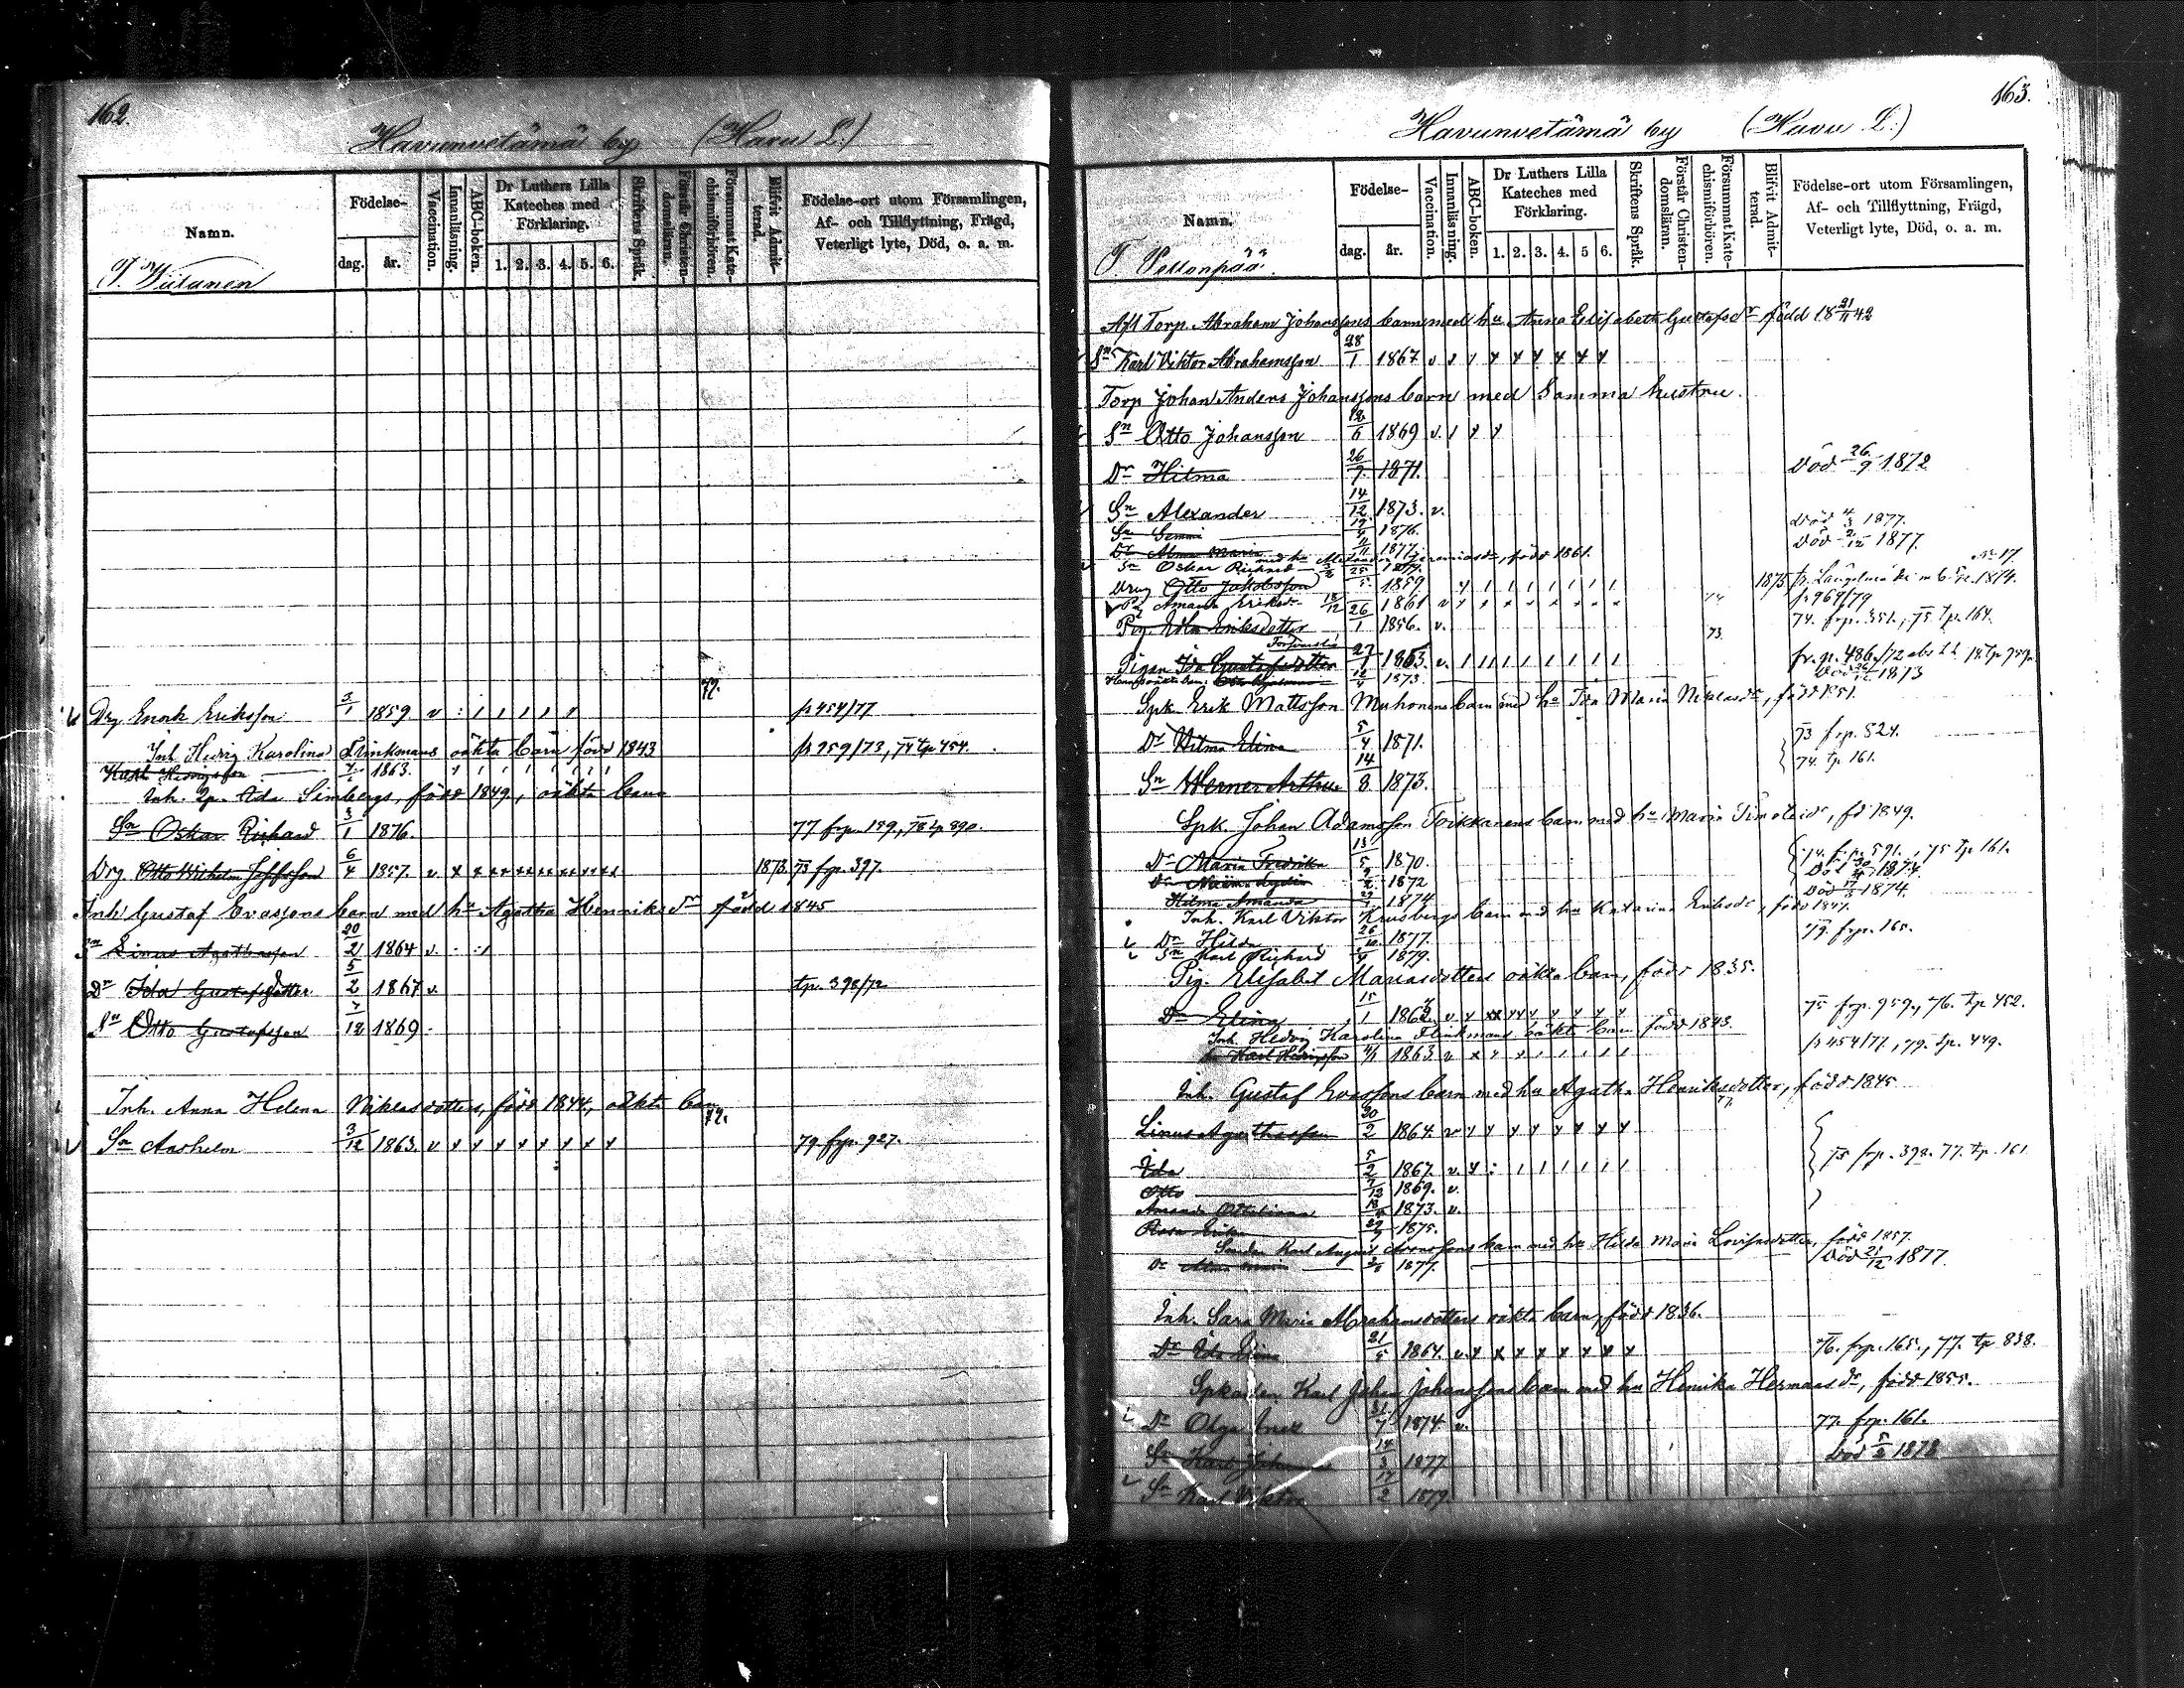 162.
Havunvetämä by (Havu L.)
Namn.
Födelse-
dag. år.
Vaccination.
Innanläsning.
ABC-boken.
Dr Luthers Lilla Kateches med Förklaring.
1. 2. 3. 4. 5. 6.
Skriftens Språk.
Förstår Christendomsläran.
Försummat Katechismiförhören.
Blifvit Admitterad.
Födelse-ort utom Församlingen, Af- och Tillflyttning, Frägd, Veterligt lyte, Död, o. a. m.
T. Wiitanen
77.
Drg Enok Eriksson 3/1 1859 v p 454/77
Inh. Hedvig Karolina Flinkmans oäkta barn född 1843 p 959/73, 77 tp 454.
Karl Hedvigsson 1863.
Inh. Ida Simbergs, född 1849, oäkta barn
Sn Oskar Richard 3/1 1876. 77 frp. 159, 78 tp 890.
Drg Otto Wilhelm 6/4 1857. v x x x x x x x x x x x 1873. 73 frp. 397.
Inh Gustaf Evassons barn med hu Agatha Henriksdr född 1845
Sn Linus Agathasson 20/2 1864 v.
Dr Ida Gustafsdotter 5/2 1867 v. tp. 398/72
Sn Otto Gustafsson 7/12 1869
Inh. Anna Helena Niklasdotters, född 1844, oäkta barn
72.
Sn Anshelm 3/12 1863. v x x x x x x x x 79 frp. 927.
163.
Havunvetämä by (Havu L.)
Namn.
Födelse-
dag. år.
Vaccination.
Innanläsning.
ABC-boken.
Dr Luthers Lilla Kateches med Förklaring.
1. 2. 3. 4. 5 6.
Skriftens Språk.
Förstår Christendomsläran.
Försummat Katechismiförhören.
Blifvit Admitterad.
Födelse-ort utom Församlingen, Af- och Tillflyttning, Frägd, Veterligt lyte, Död, o. a. m.
T. Peltonpää
Afl Torp. Abraham Johanssons barn med hu Anna Elisabeth Gustafsdr född 18 21/11 42
Sn Karl Viktor Abrahamsson 28/1 1867 v x x x x x x x x
Torp Johan Anders Johanssons barn med Samma hustru.
Sn Otto Johansson 1869 v. 1 x x
Dr Hilma 26/7 1871. Död 26/9 1872
Sn Alexander 14/12 1873. v.
Sn 1876. Död 1877.
Dr Alma Maria 11/11 1877. Död 1877.
med hu född 1861.
Sn Oskar Richard
Drng Otto Jakobsson 1859 1875 fr. Längelmäki 1874. No 17
Pig Amanda Eriksdr 18/12 1861 v p 969/79
Pig. Eriksdotter 26/1 1856. v. 73 74. frp. 351., 75 tp. 164.
Pigan Ida Gustafsdotter 27/1 1853. v. fr. p. 486/72
12/4 1873. 1873
Spk. Erik Mattsson Muhonens barn med hu Ida Maria Niklasdr, född 1851.
Dr Hilma Elina 5/4 1871. 73 frp. 524.
74. tp. 161.
Sn Werner Arthur 14/8 1873.
Spk. Johan Adamsson Toikkanens barn med hu Maria Timoteidr, fd 1849.
Dr Maria Fredrika 13/5 1870. 74. frp. 591., 75 tp. 161.
Dr Naëma Lydia 9/2 1872 1874.
Hilma Amanda 1874 Död 1874.
Inh. Karl Viktor Krusbergs barn med hu Katarina Eriksdr, född 1847.
Dr Hilda 26/10 1877. 79. frp. 165.
Sn Karl Richard 1879.
Pig. Elisabet Mariasdotters oäkta barn, född 1835.
Dr Elina 15/1 1862. 75 frp. 959., 76. tp 452.
Inh. Hedvig Karolina Flinkmans oäkta barn född 1843.
Sn Karl Hedvigsson 1863 v p 454/77, 79. tp. 449.
Inh. Gustaf Evassons barn med hu Agatha Henriksdotter, född 1845
77.
Linus Agathasson 20/2 1864. v x x x x x x x x
Ida 5/2 1867. v. x 75 frp. 398. 77. tp. 161
Otto 7/12 1869. v.
Amanda Ottiliana 1873. v.
Rosa 1875.
Karl August barn med hu Hilda Maria Lovisasdotter, född 1857.
Dr Alma Maria 1877. Död 21/12 1877.
Inh. Sara Maria Abrahamsdotters oäkta barn, född 1836.
Dr Ida 21/5 1864. v. x x x x x x x x 76. frp. 165., 77. tp 838.
Spkarlen Karl Johan Johanssons barn med hu Henrika Hermansdr, född 1855.
Dr Olga 31/7 1874 v. 77. frp. 161.
Sn Karl Johan 14/3 1877 Död 5/2 1878
Sn Karl Viktor 17/2 1879.